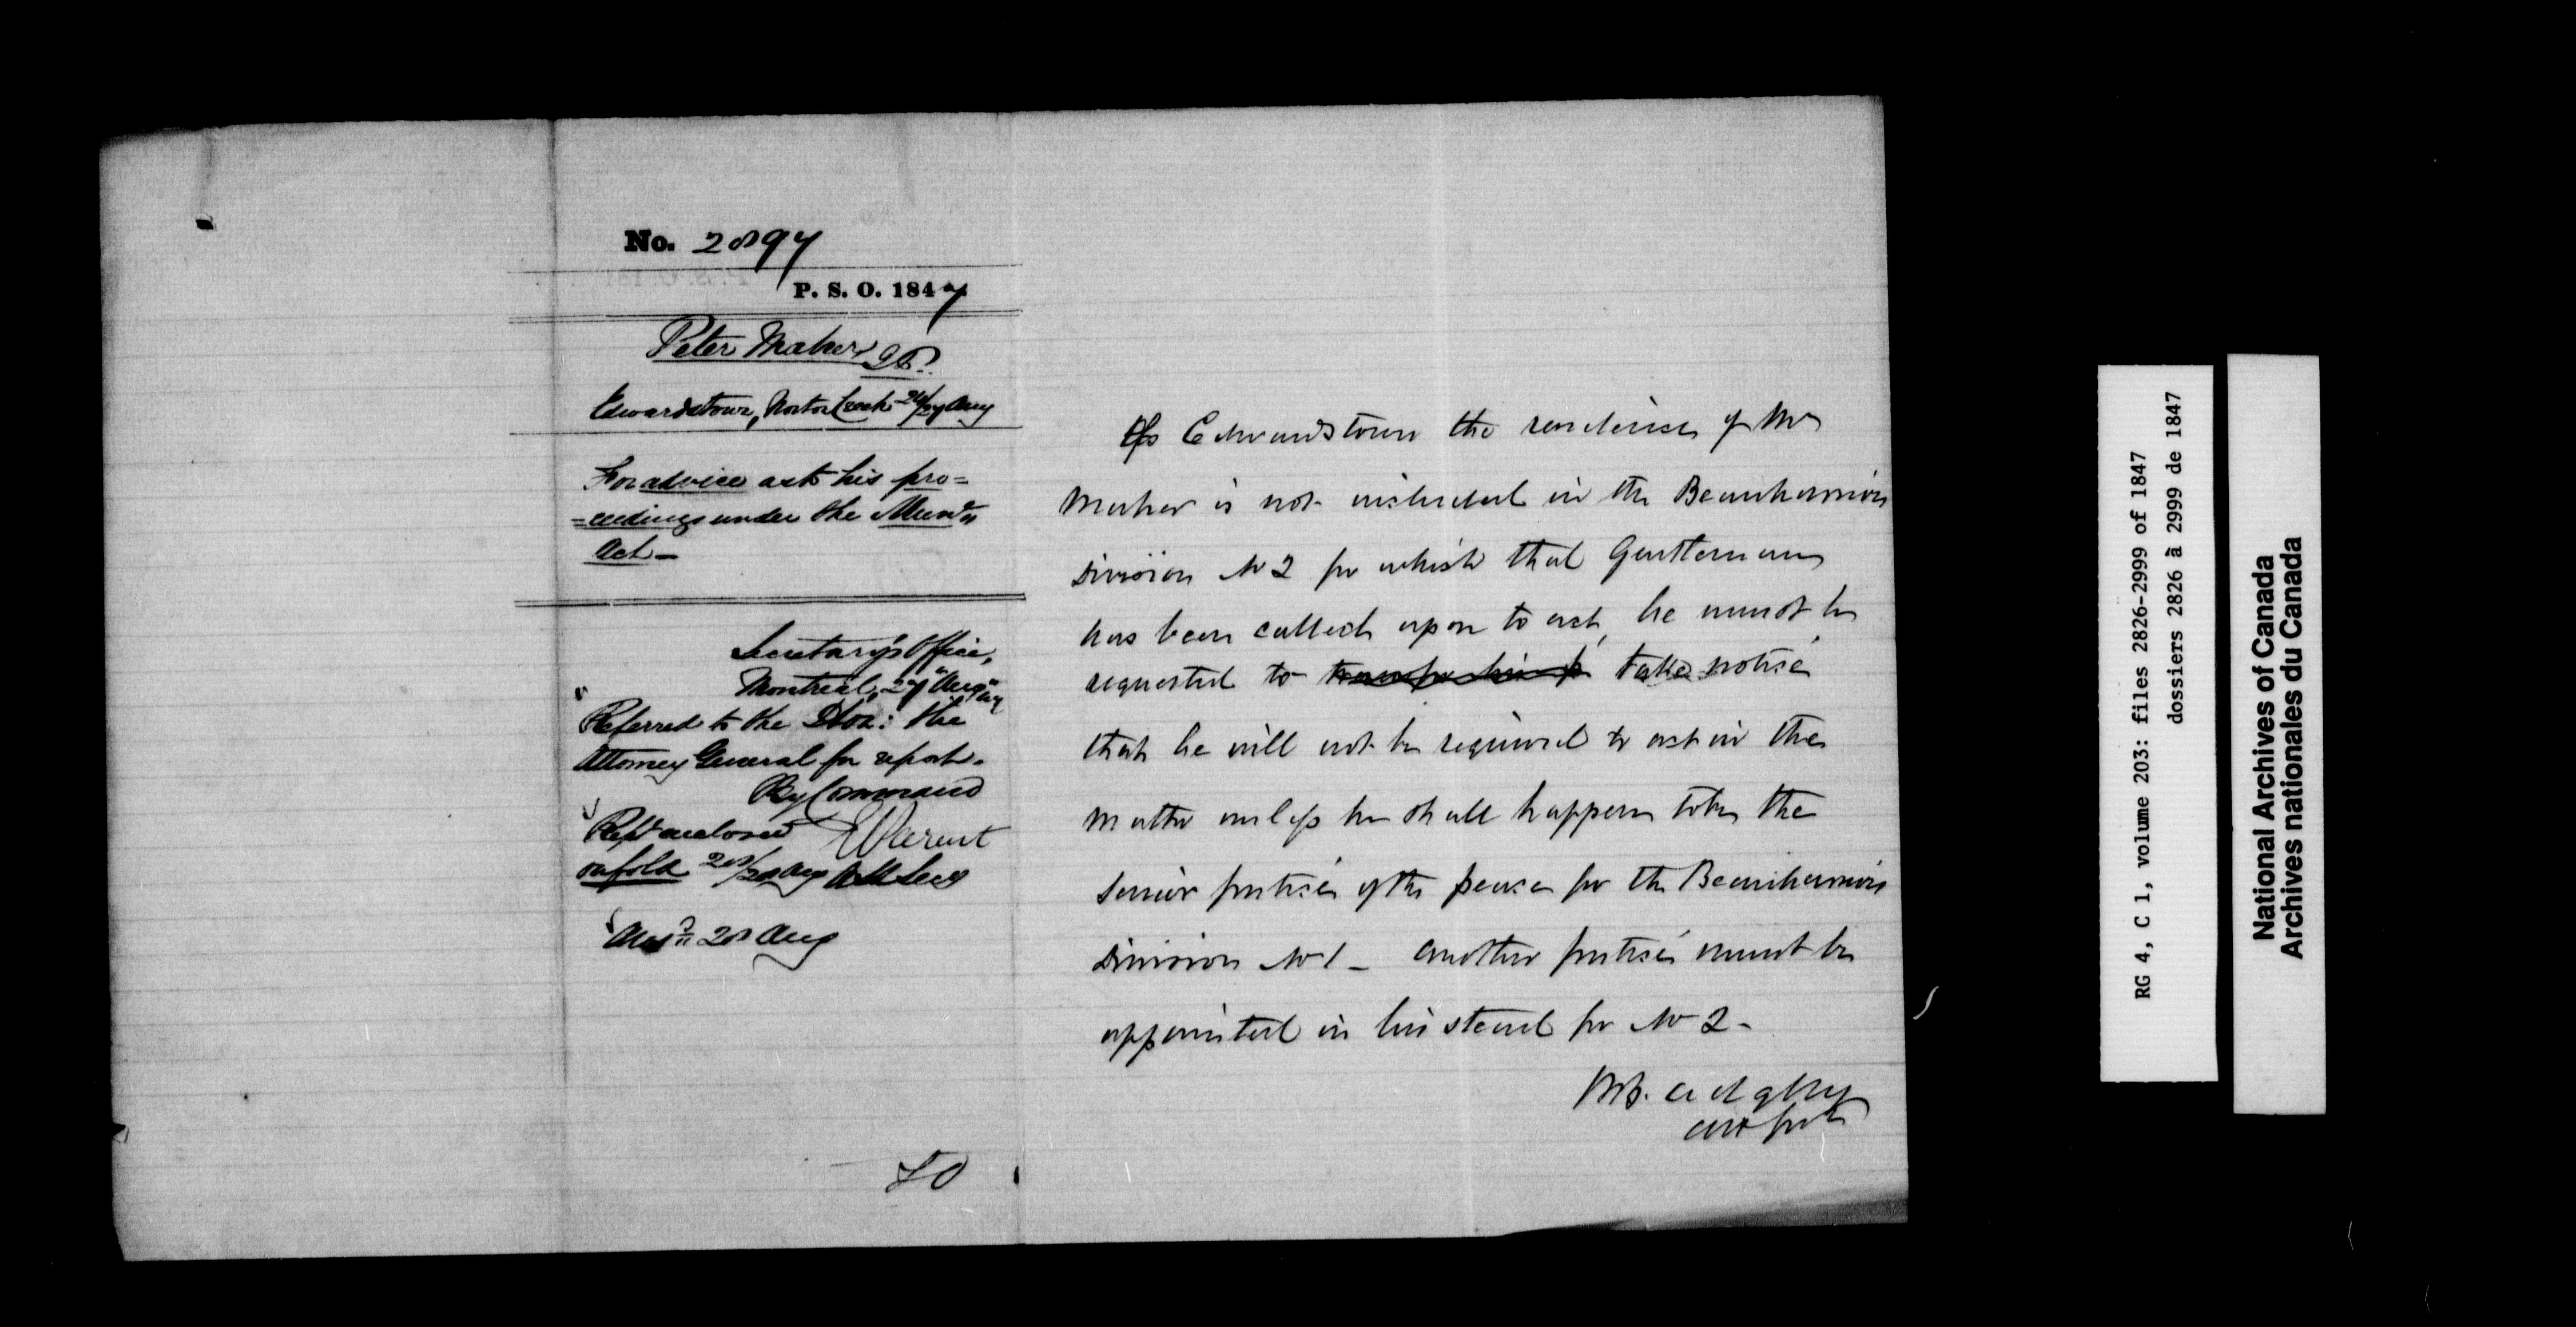 No. 2897
P. S. O. 1847
Peter Maher J.P.
Edwardstown, Norton Creek 24/27 Aug
For advice as to his pro=
=ceedings under the Munc.
Act —
Secretary's Office,
Montreal, 27 Augt 47
Referred to the Hon: the
Attorney General for report.
By Command
E Parent
Rept enclosed
on fold 28/28 Aug Asst Secy
Ansd 28 Aug
As Edwardstown the residence of Mr
Maher is not included in the Beauharnois
Division No 2 for which that Gentleman
has been called upon to act, he must be
requested to take notice
that he will not be required to act in the
matter unless he shall happen to be the
senior justice of the peace for the Beauharnois
Division No 1 — another justice must be
appointed in his stead for No 2 —
W. Badgley
RG 4, C 1, volume 203: files 2826-2999 of 1847
dossiers 2826 à 2999 de 1847
National Archives of Canada
Archives nationales du Canada